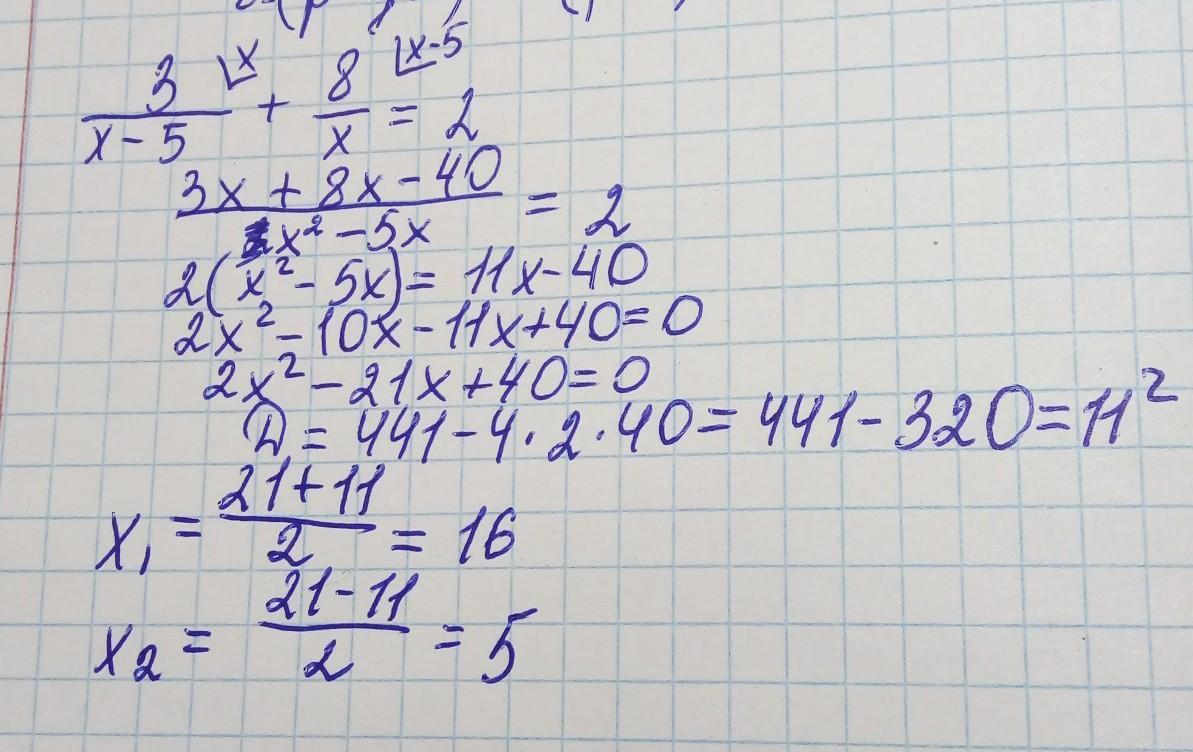 3/(x-5) + 8/x = 2
x x-5
(3x + 8x - 40)/(x² - 5x) = 2
2(x² - 5x) = 11x - 40
2x² - 10x - 11x + 40 = 0
2x² - 21x + 40 = 0
D = 441 - 4 · 2 · 40 = 441 - 320 = 11²
x₁ = (21 + 11)/2 = 16
x₂ = (21 - 11)/2 = 5